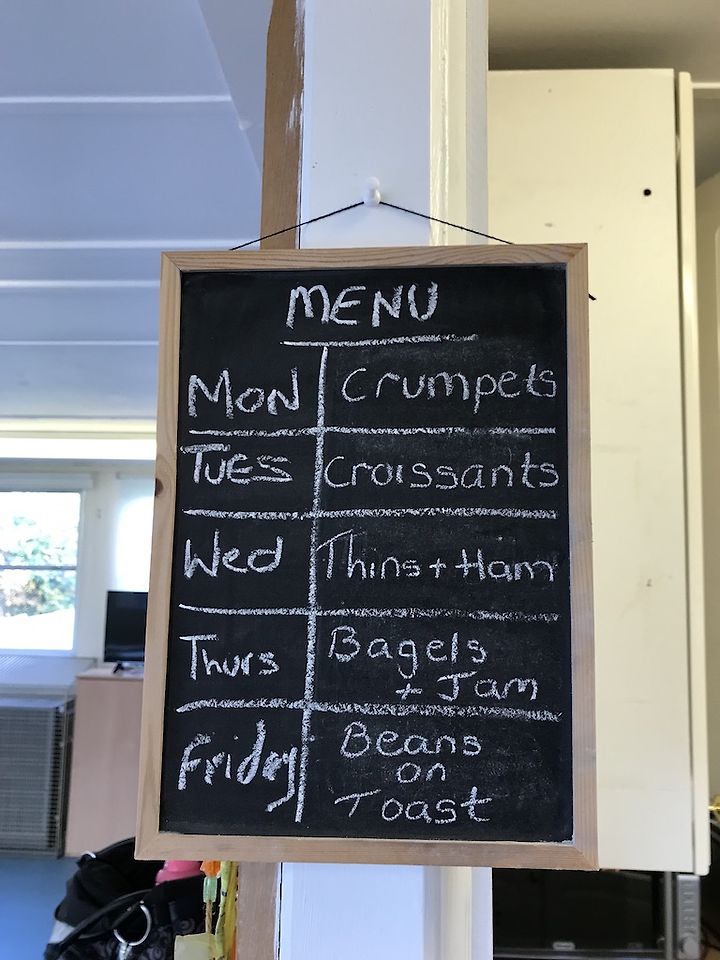 MENU
Mon Crumpets
Tues Croissants
Wed Thins + Ham
Thurs Bagels
+ Jam
Friday Beans
on
Toast